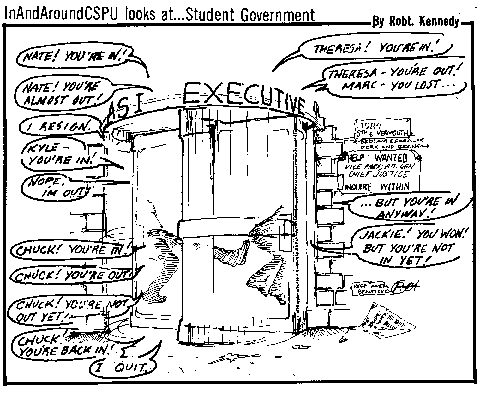 InAndAroundCSPU looks at...Student Government
By Robt. Kennedy
NATE! YOU'RE IN!
NATE! YOU'RE
ALMOST OUT!
I RESIGN!
KYLE-
YOU'RE IN!
NOPE,
I'M OUT!
CHUCK! YOU'RE IN!
CHUCK! YOU'RE OUT!
CHUCK! YOU'RE NOT
OUT YET!
CHUCK
YOU'RE BACK IN!
I QUIT
ASI EXECUTIVE
THERESA! YOU'RE IN!
THERESA - YOU'RE OUT!
MARC - YOU LOST...
HELP WANTED
CHIEF JUSTICE
INQUIRE WITHIN
...BUT YOU'RE IN
ANYWAY!
JACKIE! YOU WON!
BUT YOU'RE NOT
IN YET!